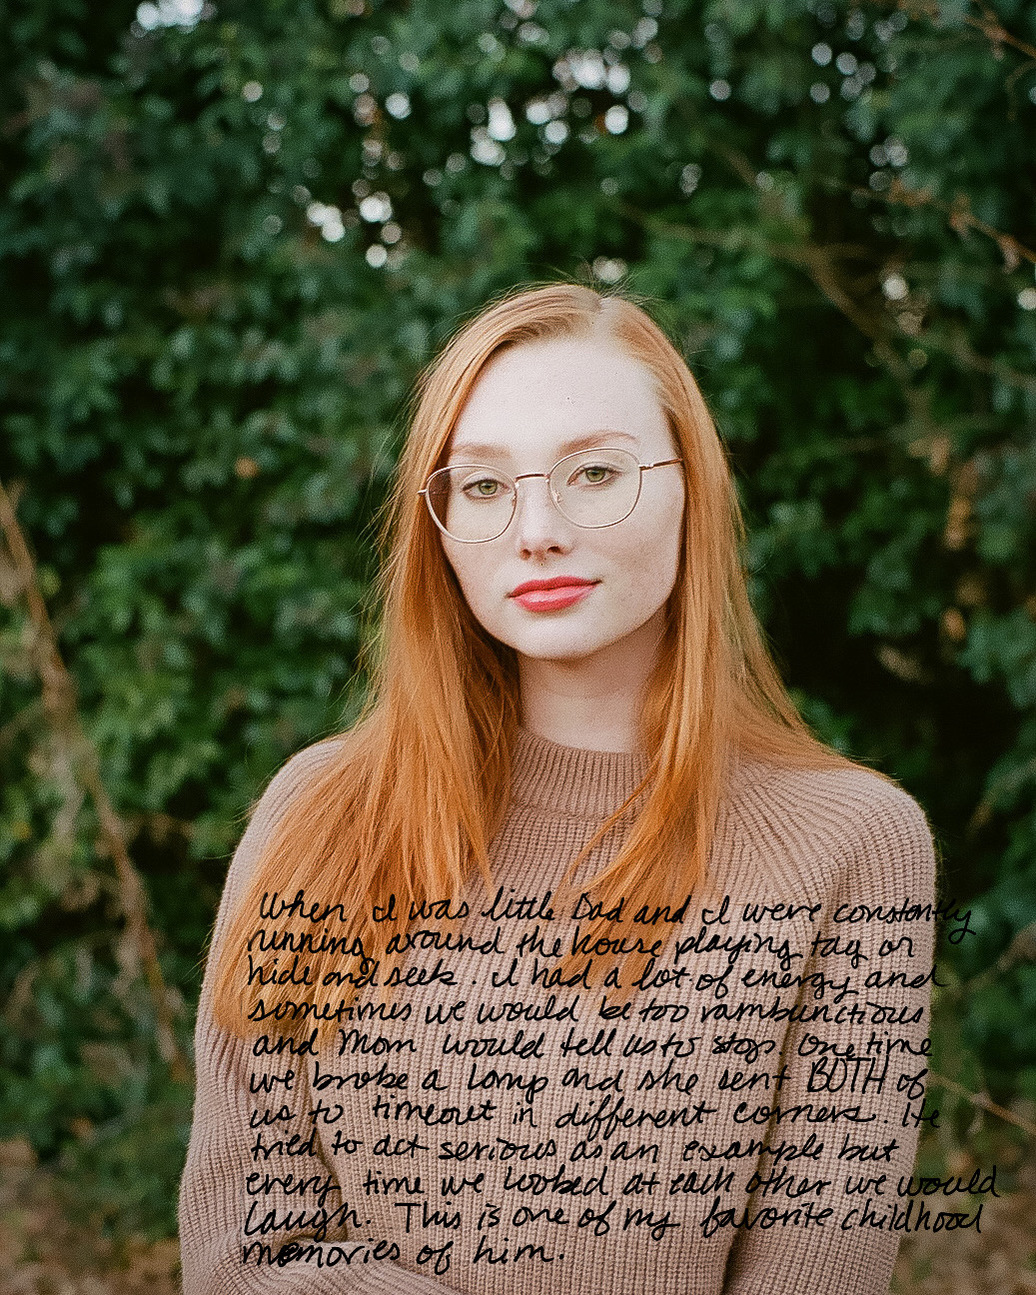 When I was little Dad and I were constantly
running around the house playing tag or
hide and seek. I had a lot of energy and
sometimes we would be too rambunctious
and Mom would tell us to stop. One time
we broke a lamp and she sent BOTH of
us to timeout in different corners. He
tried to act serious as an example but
every time we looked at each other we would
laugh. This is one of my favorite childhood
memories of him.